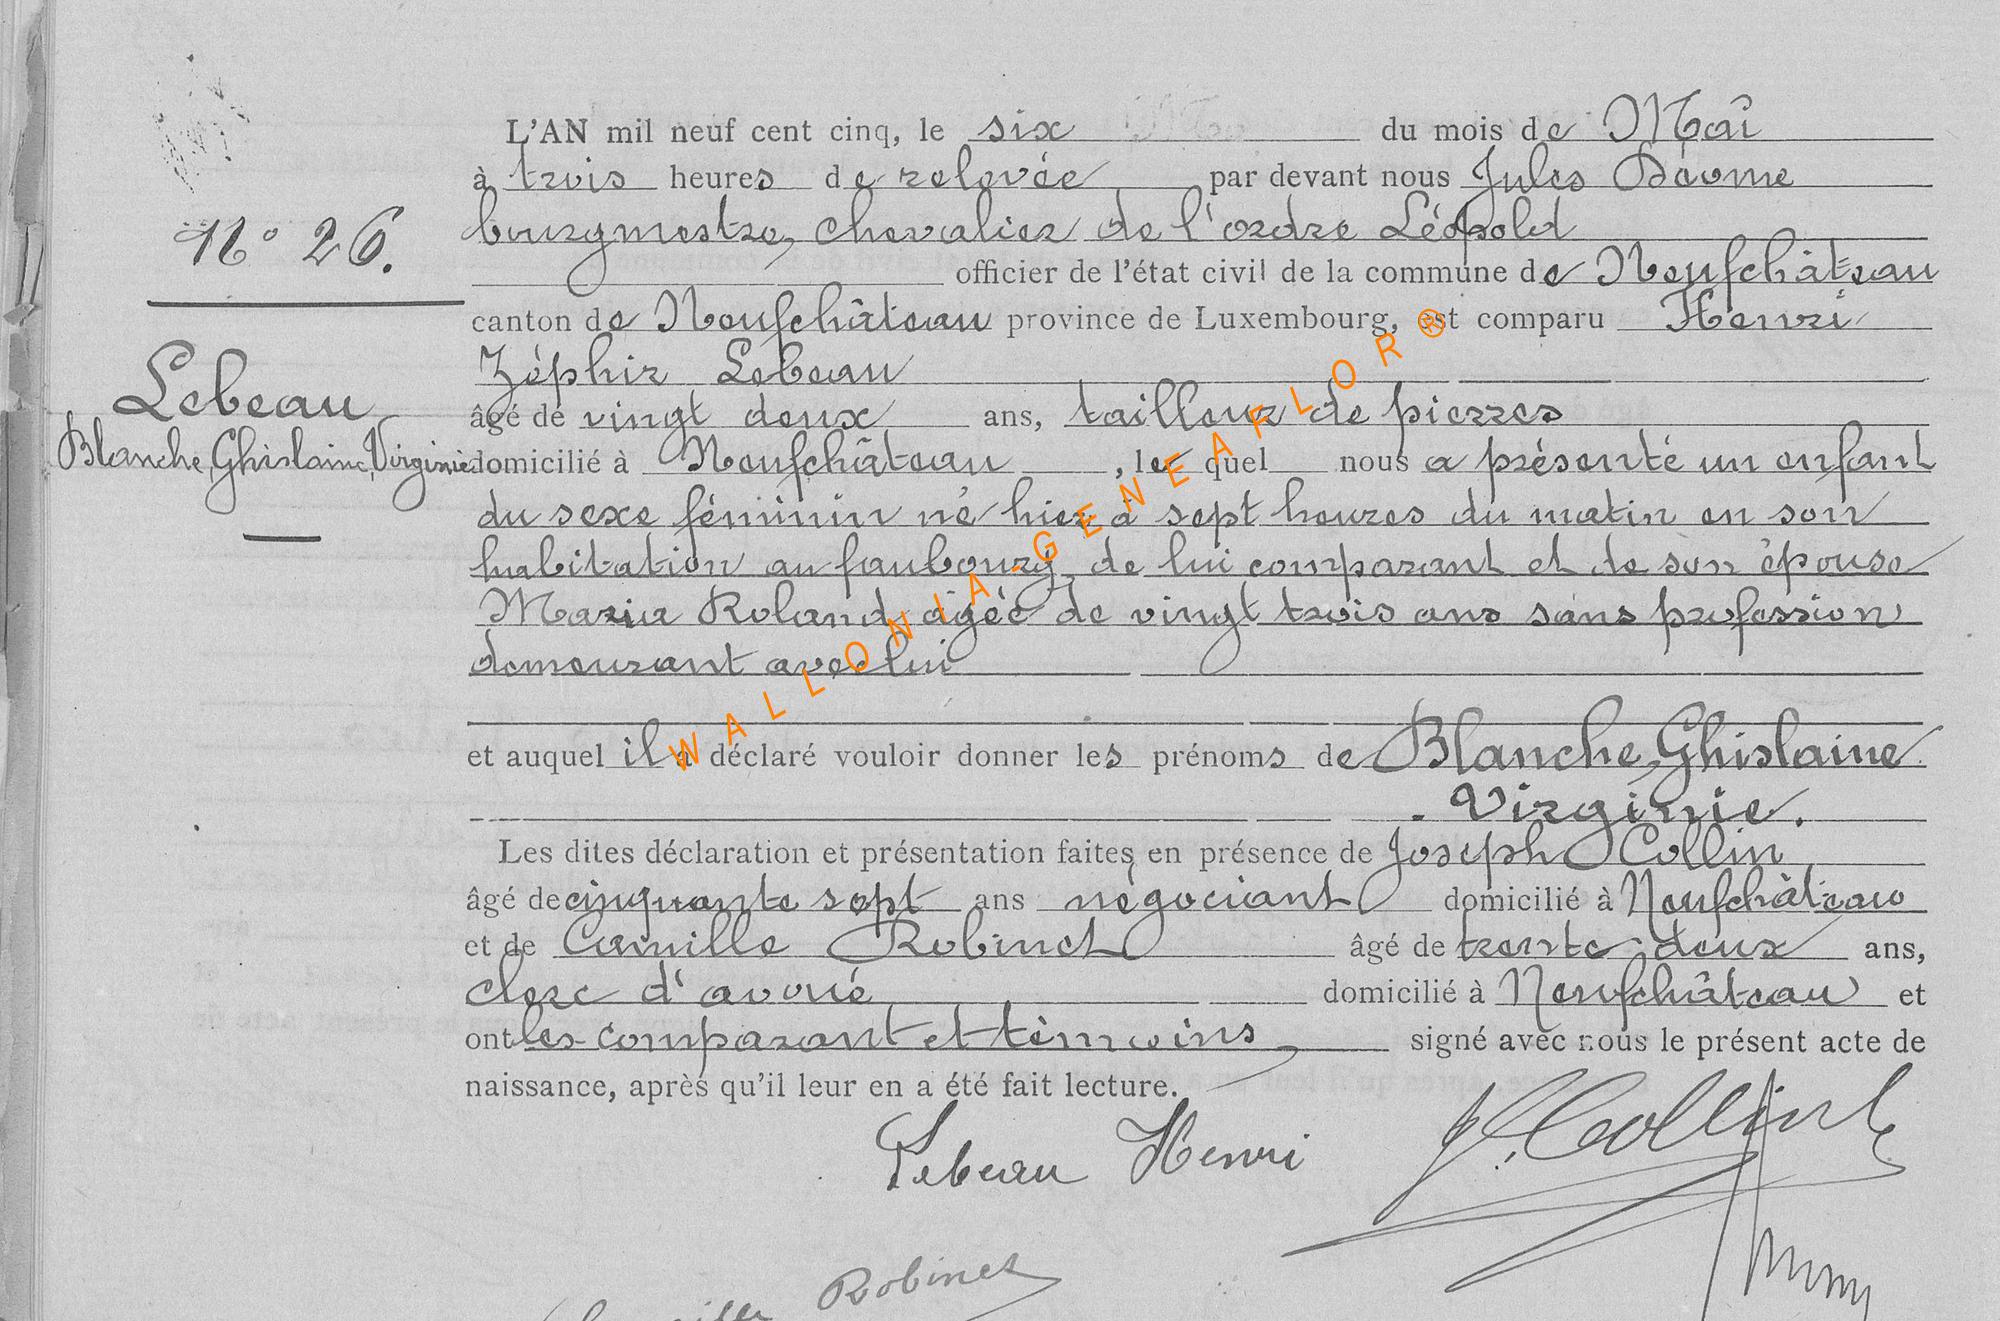 L'AN mil neuf cent cinq, le six du mois de Mai
à trois heures de relevée par devant nous Jules
bourgmestre, chevalier de l'ordre Léopold
N° 26.
officier de l'état civil de la commune de Neufchâteau
canton de Neufchâteau province de Luxembourg, est comparu Henri
Zéphir Lebeau
Lebeau
âgé de vingt deux ans, tailleur de pierres
Blanche, Ghislaine, Virginie
domicilié à Neufchâteau, lequel nous a présenté un enfant
du sexe féminin né hier à sept heures du matin en son
habitation au faubourg, de lui comparant et de son épouse
Maria Roland, âgée de vingt trois ans sans profession
demeurant avec lui
et auquel il a déclaré vouloir donner les prénoms de Blanche, Ghislaine
Virginie.
Les dites déclaration et présentation faites en présence de Joseph Collin
âgé de cinquante sept ans négociant domicilié à Neufchâteau
et de Camille Robinet âgé de trente deux ans,
clerc d'avoué domicilié à Neufchâteau et
ont les comparant et témoins signé avec nous le présent acte de
naissance, après qu'il leur en a été fait lecture.
Lebeau Henri J. Collin
Camille Robinet
WALLONIA-GENEAFLOR®